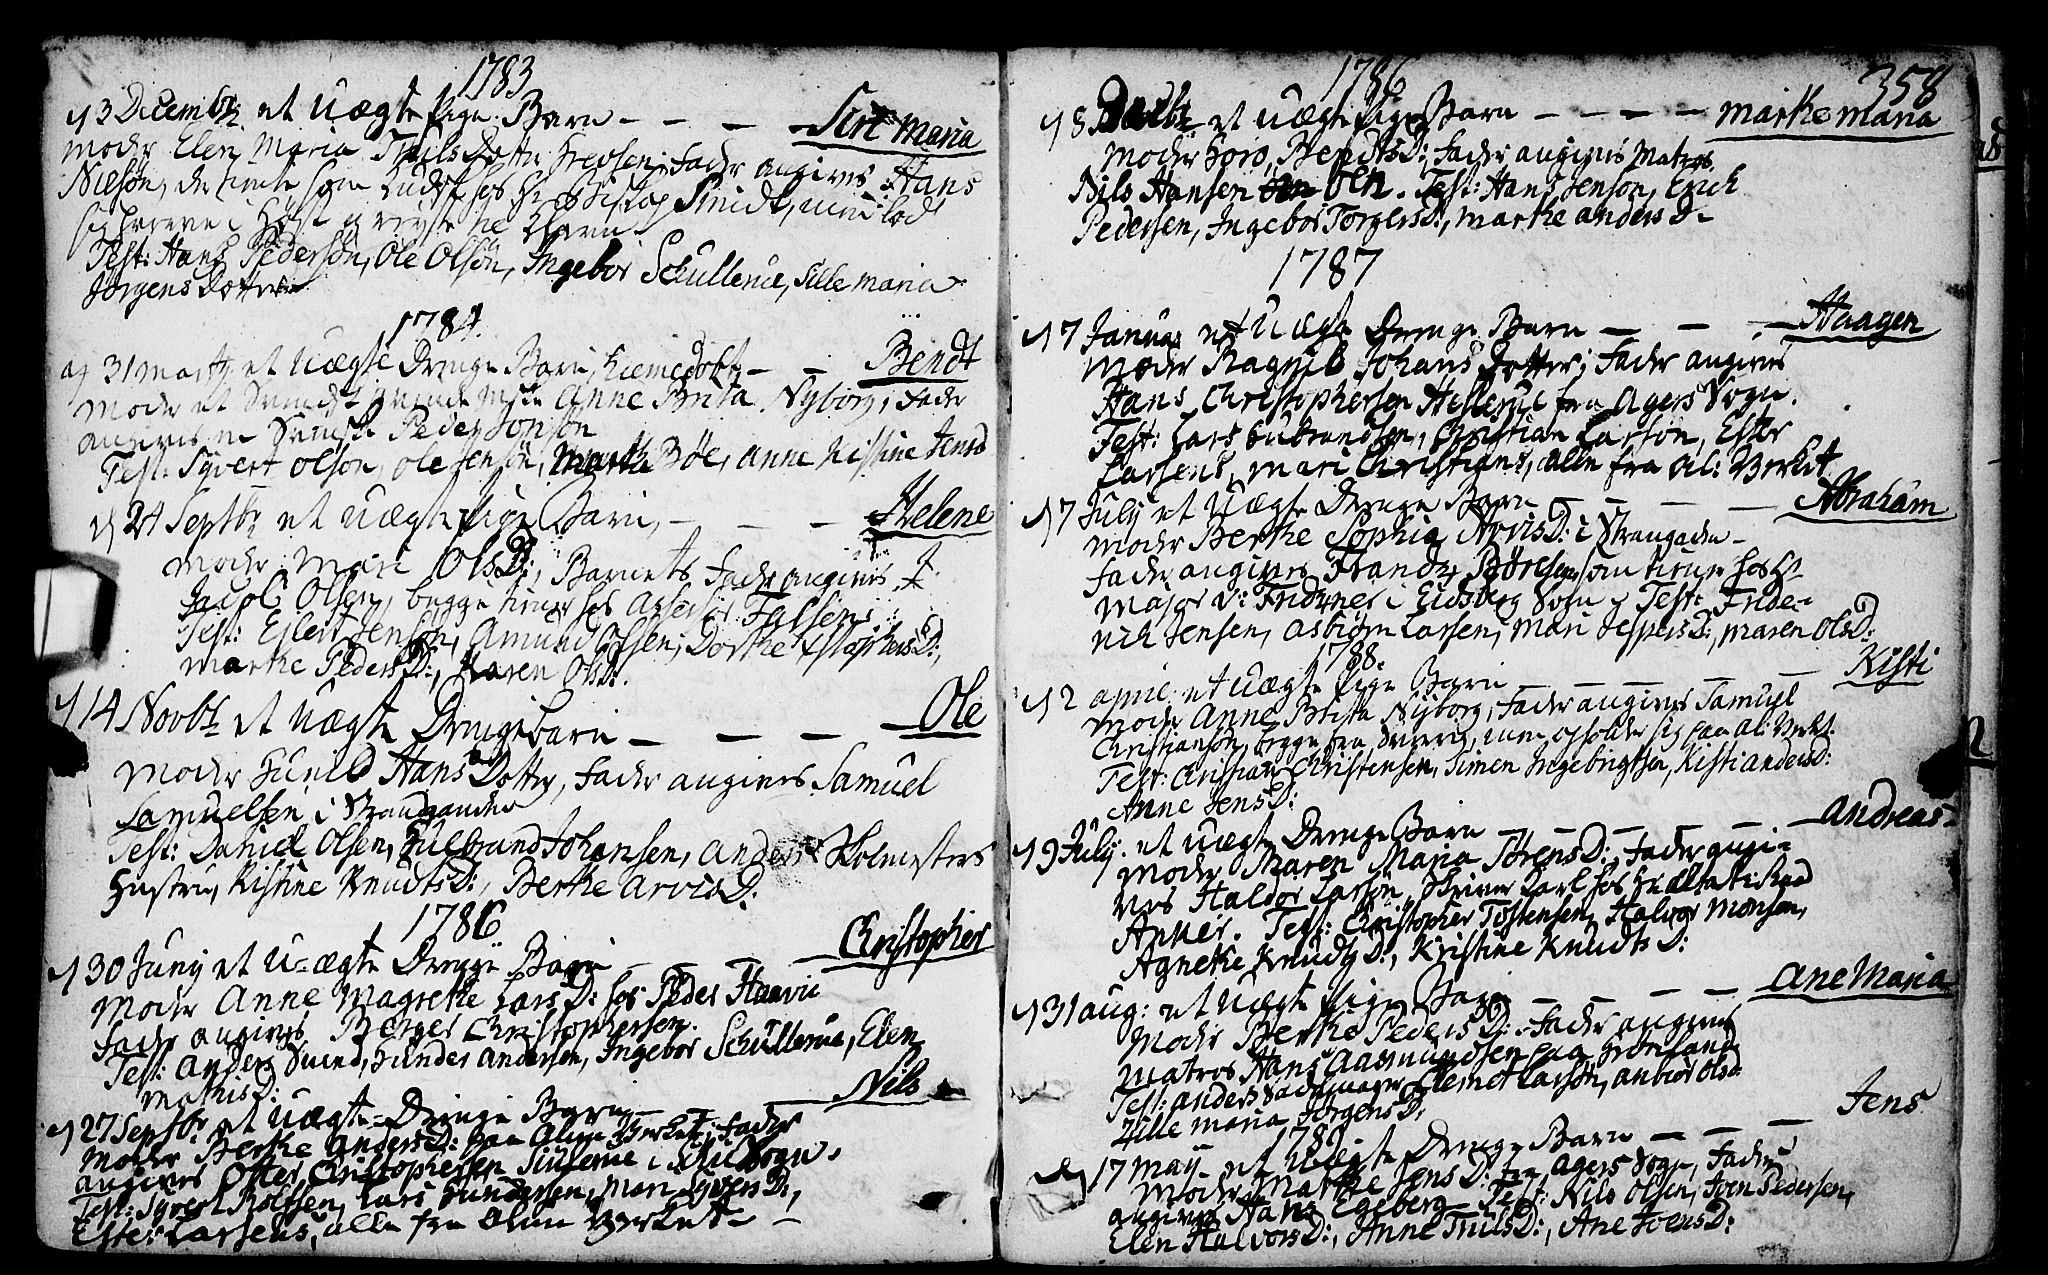 1783
d 13 Decembr. et uægte Pige Barn - - - Siri Maria
Moder Elen Maria Truls Dotter; Fader angives Hans
Nielsøn, der tiente som Kudsk hos Hr. Bistop Smidt, men lod
sig hverve i Høst og reiyste
Test: Hans Pedersøn, Ole Olsøn, Ingebor Schullerue, Sille Maria
Jørgens Dotter
1784
d 31 Marty et uægte Drenge Barn, hiemedøbt - - Bendt
Moder et Svendst Qvinde Anne Brita Nyborg; Fader
angives en Svensk Peder Jonsøn
Test: Syvert Olsøn, Ole Jensøn, Marthe Bøe, Anne Kistine Jensd
d 24 Septbr et uægte Pige Barn, - - - Helene
Moder Mari OlsD:, Barnets Fader angives
Jacob Olsen, begge tiener hos Assessor Falsen
Test: Ejlert Jensen, Amund Olsen, Dorthe
Marthe PedersD:, Karen OlsD.
d 14 Novbr et uægte Drengebarn - - - Ole
Moder Gunild Hans Dotter, Fader angives Samuel
Samuelsen i Strandgaden
Test: Daniel Olsen, Gulbrand Johansen, Anders Holmesters
Hustru, Kistine KnudtsD:, Berthe ArvisD:
1786
d 30 Juny et u-ægte Drenge Barn - - - Christopher
Moder Anne Magrethe LarsD: hos Peder Haavii
Fader angives Børger Christophersen.
Test: Anders Svend, Gunder Andersen, Ingebor Schullerue, Elen
MathisD:
d 27 Septbr et uægte Drenge Barn - - - Nils
Moder Berthe AndersD: paa Alun Verket; Fader
angives Oster Christophersen i Sogn.
Test: Syvert Rolfsen, Lars Gundersen, Mari SyversD:,
Ester Larsens, alle fra Alun Verket -
1786
358
d 8 et uægte Pige Barn - - - - Marthe Maria
Moder Goro BendtsD: Fader angives Matros
Nils Hansen. Test: Hans Jensøn, Erich
Pedersen, Ingebor TorgersD:, Marthe Anders D-
1787
d 7 Januar et uægte Drenge Barn - - - Haagen
Moder Ragnil Johans Dotter; Fader angives
Hans Christophersen Hellerue fra Agers Sogn.
Test: Lars Gubrandsen, Christian Larsøn, Ester
Larsens, Mari Christians, alle fra Al: Verket
d 7 July et uægte Drenge Barn - - - Abraham
Moder Berthe Sophia ArvisD: i Strangaden -
Fader angives Frandz Børresen, som tiener hos Hr
Major v: Fridzner i Eidsberg Sogn. Test: Frede-
rich Jensen, Asbiørn Larsen, Mari JespersD:, Maren OlsD:
1788.
d 2 April et uægte Pige Barn - - - Kisti
Moder Anne Britta Nyborg, Fader angives Samuel
Christiansøn, begge fra Sverrig, men opholder sig paa Al: Verket.
Test: Christian Christensen, Simen Ingebrigtsen, Kisti AndersD:
Anne JensD:
d 9 July et uægte Drenge Barn - - - Andreas -
Moder Maren Maria SørensD: Fader angi-
ves Haldor Larsøn, Skriver Karl hos Hr Etats Raad
Anker. Test: Christopher Tostensen, Halvor Monsøn,
Agnethe KnudtzD:, Kristine KnudtsD:
d 31 Aug: et uægte Pige Barn - - - Ane Maria
Moder Berthe PedersD: Fader angives
Matros Hans Aasmundsen paa Grønland
Test: Anders Sadelmager, Clemet Larsøn, Anbior Olsd:
Zille Maria JørgensD:
1789
d 17 May et uægte Drenge Barn - - - Jens
Moder Marthe JensD: fra Agers Sogn, Fader
angives Hans Egeberg - Test: Nils Olsen, Joen Pedersen,
Elen HalvorsD:, Anne TrulsD:, Ane JoensD: